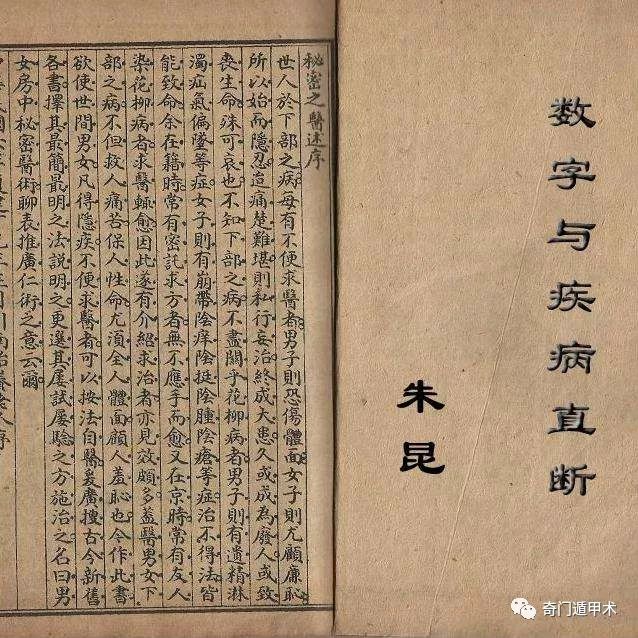 数字与疾病直断
朱昆
秘密之醫述序
世人於下部之病每有不便求醫者男子則恐傷體面女子則尤顧廉恥
所以始而隱忍迨痛楚難堪則私行妄治終成大患久或成為廢人或致
喪生命殊可哀也不知下部之病不盡關乎花柳病者男子則有遺精淋
濁疝氣偏墜等症女子則有崩帶陰痒陰挺陰腫陰瘡等症治不得法皆
能致命余在籍時常有密託求方者無不應手而愈又在京時常有友人
染花柳病者求醫輒愈因此遂有介紹求治者亦見效頗多蓋醫男女下
部之病不但救人痛苦保人性命尤須全人體面顧人羞恥也今作此書
欲使世間男女凡得隱疾不便求醫者可以按法自醫爰廣搜古今新舊
各書擇其最簡最明之法説明之更選其屢試屢驗之方施治之名曰男
女房中秘密醫術聊表推廣仁術之意云爾
奇门遁甲术